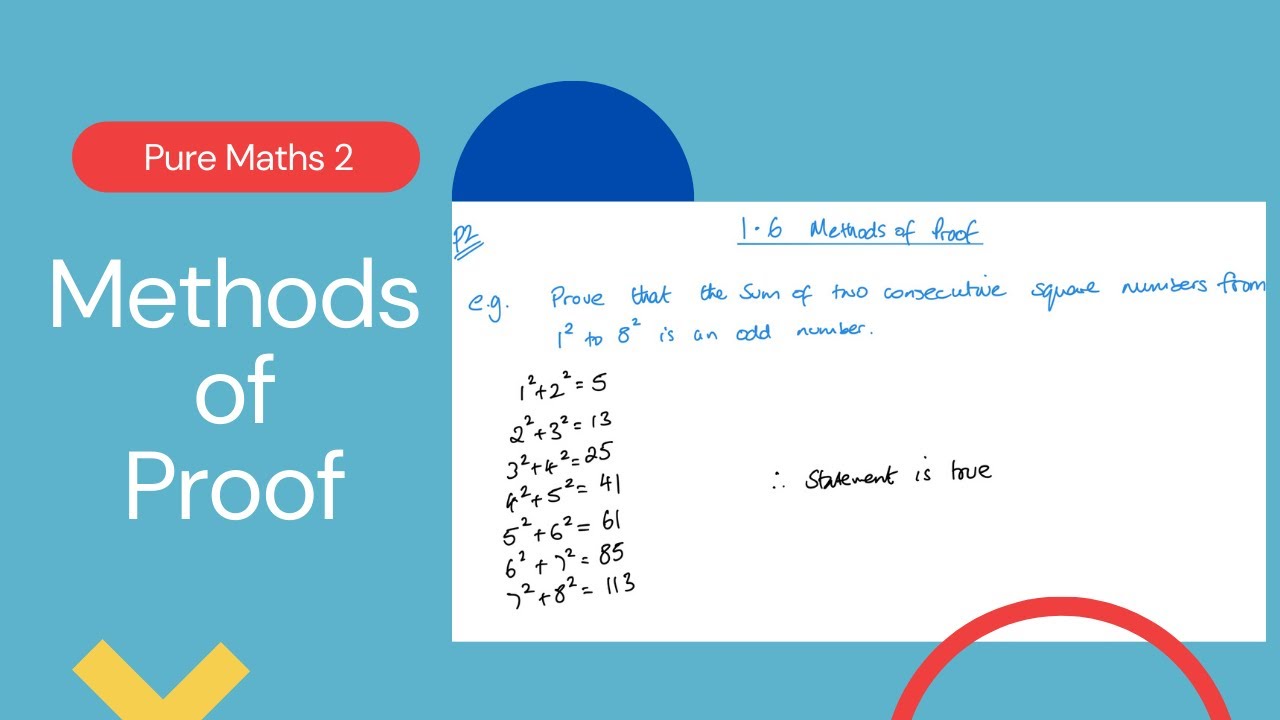 Pure Maths 2
Methods
of
Proof
P2
1.6 Methods of Proof
e.g. Prove that the sum of two consecutive square numbers from
1² to 8² is an odd number.
1²+2²=5
2²+3²=13
3²+4²=25
4²+5²=41
5²+6²=61
6²+7²=85
7²+8²=113
∴ Statement is true